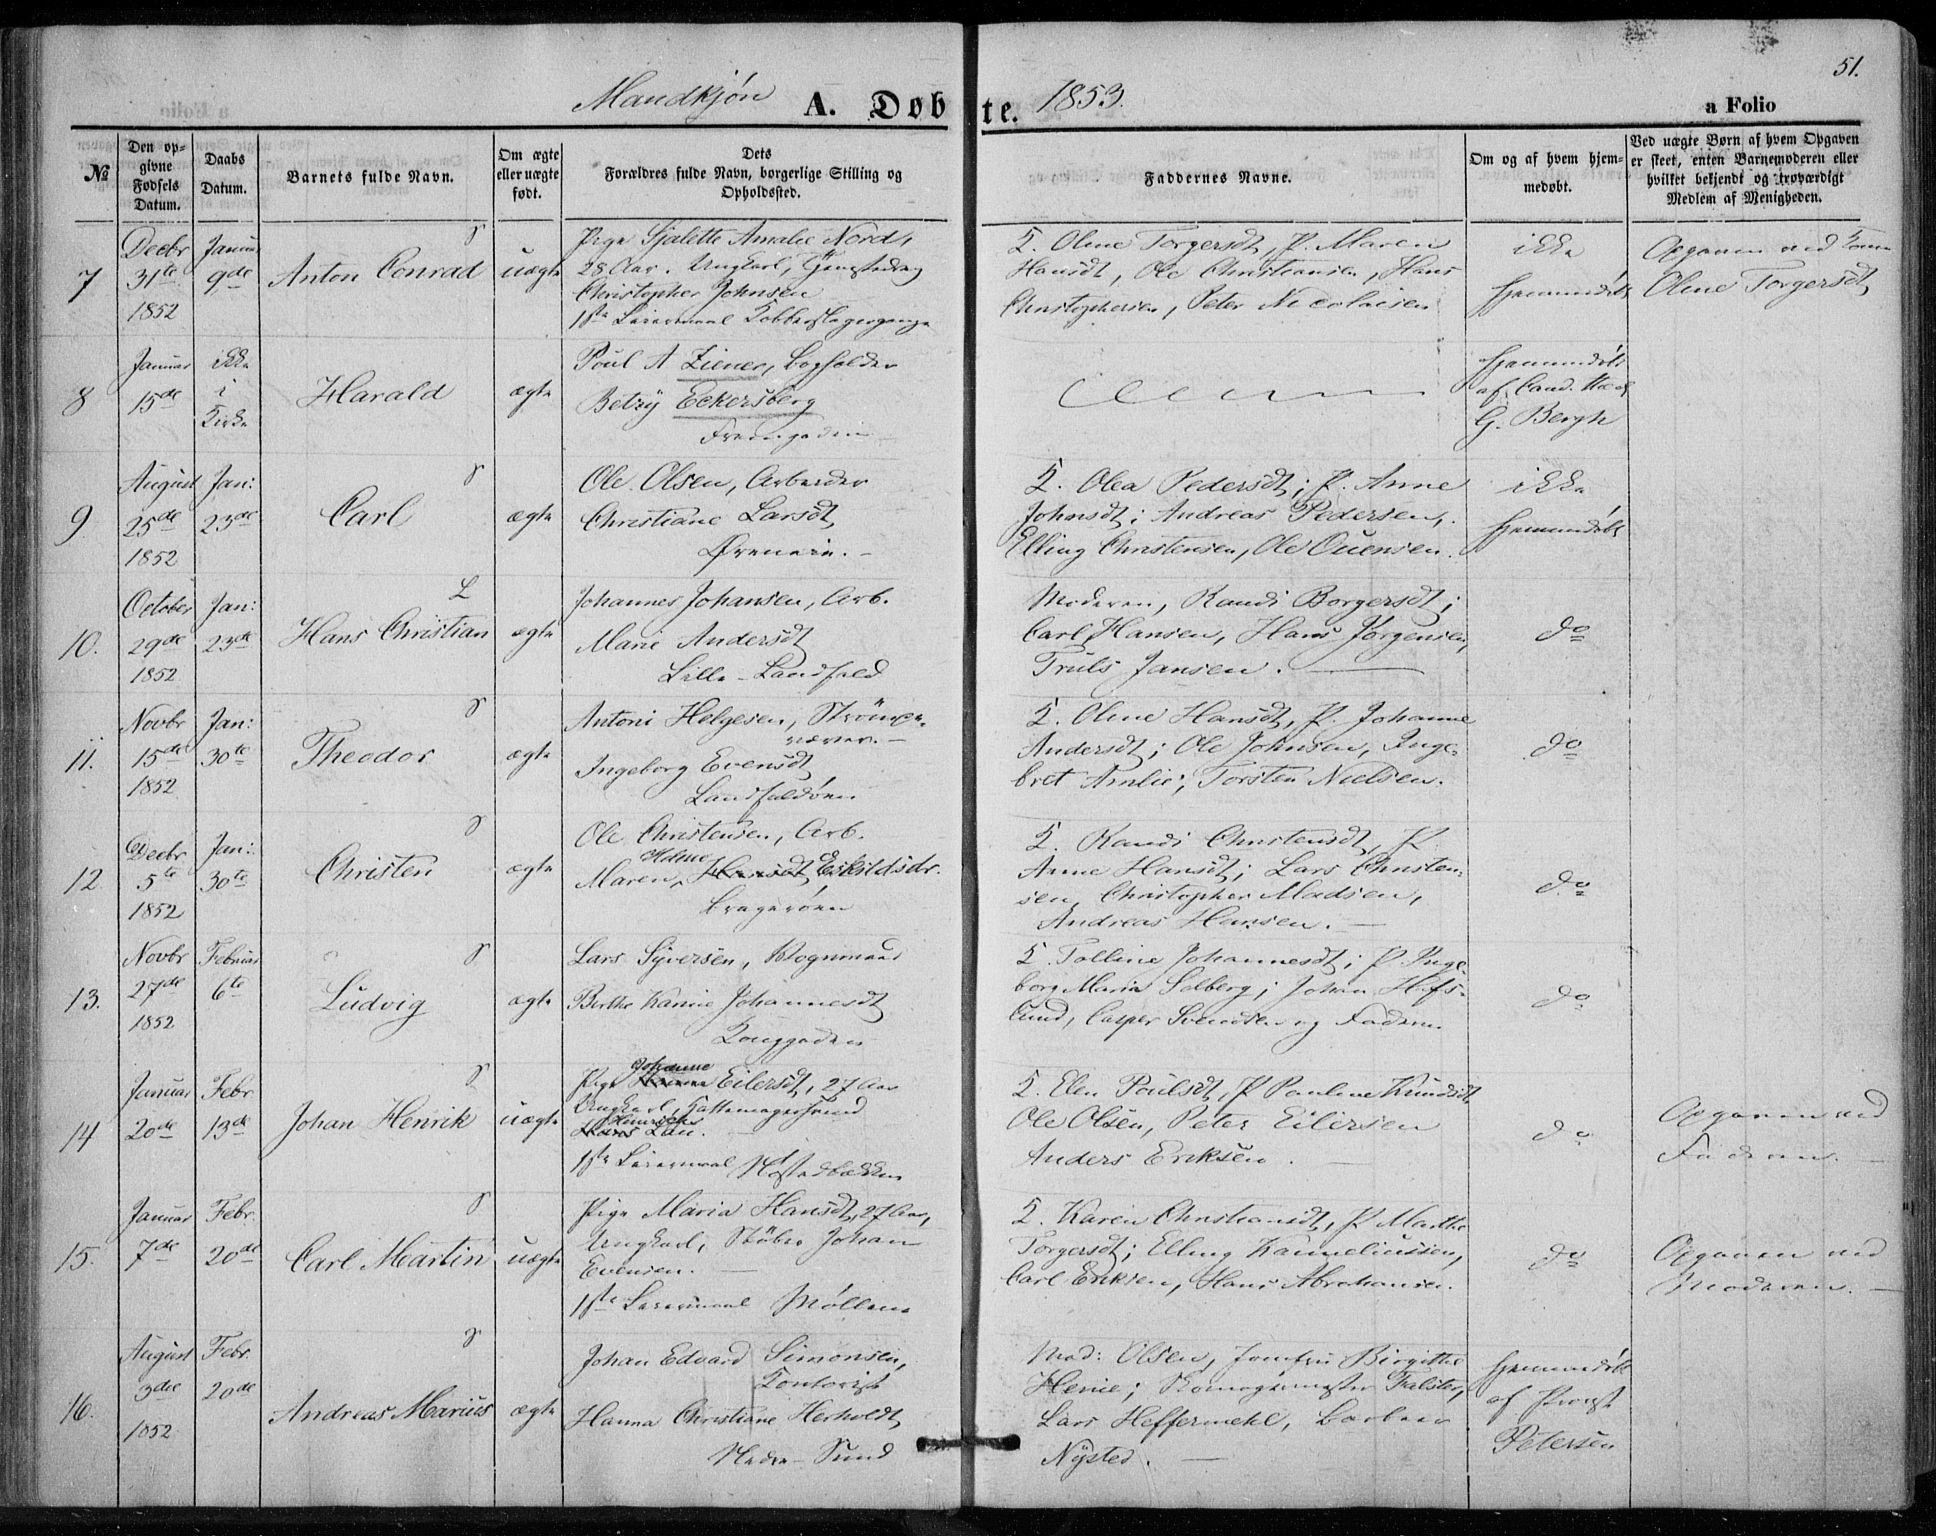 Mandkjøn A. Døbte. 1853. 51.
a Folio
No
Den opgivne Fødsels Datum.
Daabs Datum.
Barnets fulde Navn.
Om ægte eller uægte født.
Dets Forældres fulde Navn, borgerlige Stilling og Opholdssted.
Faddernes Navne.
Om og af hvem hjemmedøbt.
Ved uægte Børn af hvem Opgaven er skeet, enten Barnemoderen eller hvilket bekjendt og troværdigt Medlem af Menigheden.
7
Decbr 31te 1852
Januar 9de
Anton Conrad
uægte
Pige Sjalette Amalie Nord,
28 Aar. Ungkarl,
Christopher Johnsen
1ste Leiermaal
K. Oline Torgersdt, P. Maren
Hansdt, Ole Christiansen, Hans
Christophersen, Peter Nicolaisen
ikke
hjemmedøbt
Opgaven ved
Oline Torgersdt
8
Januar 15de
ikke i Kirke
Harald
ægte
Poul A Ziener, Bogholder
Betzy Eckersberg
hjemmedøbt
af Cand. Med.
G. Bergh
9
August 25de 1852
Jan: 23de
Carl
ægte
Ole Olsen, Arbeider
Christiane Larsdt
K. Olea Pedersdt; P. Anne
Johnsdt; Andreas Pedersen,
Elling Christensen, Ole Ouensen.
ikke
hjemmedøbt
10.
October 29de 1852
Jan: 23de
Hans Christian
ægte
Johannes Johansen, Arb.
Marie Andersdt
Lille-Landfald
Moderen, Randi Borgersdt;
Carl Hansen, Hans Jørgensen,
Truls Jansen.
do
11.
Novbr 15de 1852
Jan: 30te
Theodor
ægte
Antoni Helgesen, Strømpe-
væver.
Ingeborg Evensdt
Landfaldøen
K. Oline Hansdt, P. Johanne
Andersdt; Ole Johnsen, Inge-
bret Amlie; Torsten Nielsen.
do
12
Decbr 5te 1852
Jan: 30te
Christen
ægte
Ole Christensen, Arb.
Maren Helene Hansdt Eskildsdr.
Bragerøen
K. Randi Christensdt, P.
Anne Hansdt; Lars Christen-
sen, Christopher Madsen,
Andreas Hansen.
do
13.
Novbr 27de 1852
Februar 6te
Ludvig
ægte
Lars Syversen, Vognmand
Berthe Karine Johannesdt
Konggaden
K. Tolline Johannesdt; P. Inge-
borg Maria Solberg; Johan Hafs-
lund, Casper Svendsen og Faderen.
do
14
Januar 20de
Febr 13de
Johan Henrik
uægte
Pige Johanne Eilersdt, 27 Aar
Ungkarl, Hattemagersvend
Hans Henrichs Lau.
1ste Leiermaal
K. Elen Poulsdt, P. Pauline Knudsdt
Ole Olsen, Peter Eilersen
Anders Eriksen.
do
Opgaven ved
Faderen.
15.
Januar 7de
Febr. 20de
Carl Martin
uægte
Pige Maria Hansdt, 27 Aar,
Ungkarl, Støber Johan
Evensen.
1ste Leiermaal Møllen
K. Karen Christiansdt, P. Marthe
Torgersdt; Elling Kanneliussen,
Carl Eriksen, Hans Abrahamsen.
do
Opgaven ved
Moderen.
16.
August 3die 1852
Febr. 20de
Andreas Marius
ægte
Johan Edvard Simonsen,
Kontorist
Hanna Christiane Herholdt
Nedre-Sund
Mad: Olsen, Jomfru Birgitte
Henie; Falster,
Lars Heffermehl, Barber
Nysted.
hjemmedøbt
af Provst
Petersen